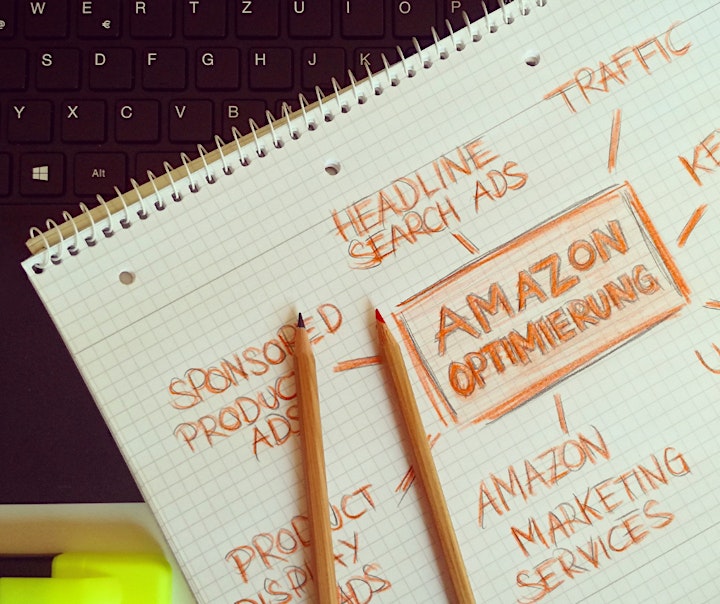 W E R T Z U I O P
@ €
S D F G H J K
Y X C V B
Alt
TRAFFIC
KE
HEADLINE
SEARCH ADS
AMAZON
OPTIMIERUNG
SPONSORED
PRODUCT
ADS
AMAZON
MARKETING
SERVICES
PRODUCT
DISPLAY
ADS